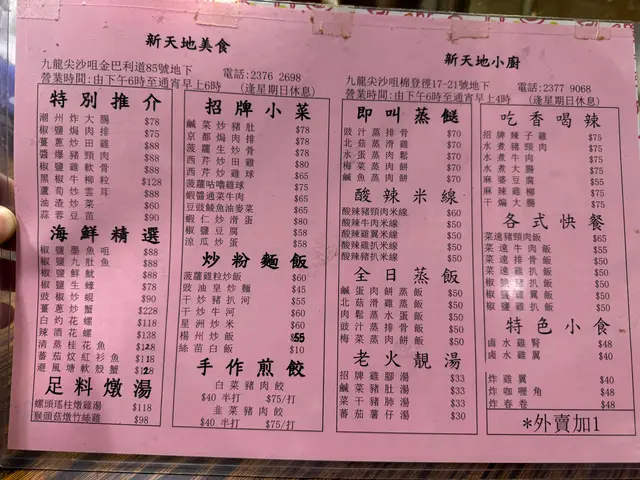 新天地美食
九龍尖沙咀金巴利道85號地下
電話:2376 2698
營業時間:由下午6時至通宵早上6時
(逢星期日休息)
特別推介
潮州炸大腸 $78
椒鹽焗肉排 $75
薑蔥炒田雞 $88
醬爆豬頸肉 $88
椒鹽雞軟骨 $88
黑椒牛柳粒 $128
蘆筍炒雲耳 $88
油渣炒菜 $60
蒜蓉豆苗 $90
海鮮精選
椒鹽墨魚咀 $88
椒鹽九肚魚 $88
椒鹽鮮魷 $88
椒鹽生蠔 $78
豉椒炒蜆 $90
薑蔥炒蟹 $228
白灼花螺 $118
辣酒花螺 $138
清蒸桂花魚
蕃茄炆紅衫魚
避風塘軟殼蟹
足料燉湯
螺頭瑤柱燉雞湯 $118
猴頭菇燉竹絲雞 $98
招牌小菜
鹹菜炒豬肚 $78
京都焗肉排 $78
菠蘿生炒骨 $78
西芹炒田雞 $80
西芹炒雞球 $65
菠蘿咕嚕雞球 $75
蝦醬通菜牛肉 $65
豆豉鯪魚油麥菜 $65
蝦仁炒滑蛋 $80
椒鹽豆腐 $58
涼瓜炒蛋 $58
炒粉麵飯
菠蘿雞粒炒飯 $60
豉油皇炒麵 $45
干炒豬扒河 $55
干炒牛河 $60
星洲炒米 $60
楊州炒飯 55
絲苗白飯 $10
手作煎餃
白菜豬肉餃
$40 半打 $75/打
韭菜豬肉餃
$40 半打 $75/打
新天地小廚
九龍尖沙咀棉登徑17-21號地下
電話:2377 9068
營業時間:由下午6時至通宵早上4時
(逢星期日休息)
即叫蒸餸
豉汁蒸排骨 $70
北菇蒸滑雞 $70
水蛋蒸肉鬆 $70
梅菜蒸肉餅 $70
鹹魚蒸肉餅 $70
酸辣米線
酸辣豬頸肉米線 $60
酸辣牛肉米線 $50
酸辣雞翼米線 $50
酸辣雞扒米線 $50
酸辣豬扒米線 $50
全日蒸飯
鹹蛋肉餅蒸飯 $50
北菇滑雞蒸飯 $50
肉鬆蒸水蛋飯 $50
豉汁蒸排骨飯 $50
梅菜蒸肉餅飯 $50
老火靚湯
招牌雞腳湯 $33
鹹菜豬肚湯 $33
菜干豬肺湯 $33
蕃茄薯仔湯 $30
吃香喝辣
招牌辣子雞 $75
水煮豬頸肉 $75
水煮牛肉 $75
水煮大腸 $75
麻婆豆腐 $55
麻辣雞柳 $75
干煸大腸 $75
各式快餐
菜遠豬頸肉飯 $65
菜遠牛肉飯 $55
菜遠雞扒飯 $50
菜遠豬扒飯 $50
椒鹽豬扒飯 $50
椒鹽雞翼飯 $50
椒鹽雞扒飯 $50
特色小食
鹵水雞腎 $48
鹵水雞翼 $48
炸雞翼 $40
炸咖喱角 $48
炸春卷 $48
*外賣加1